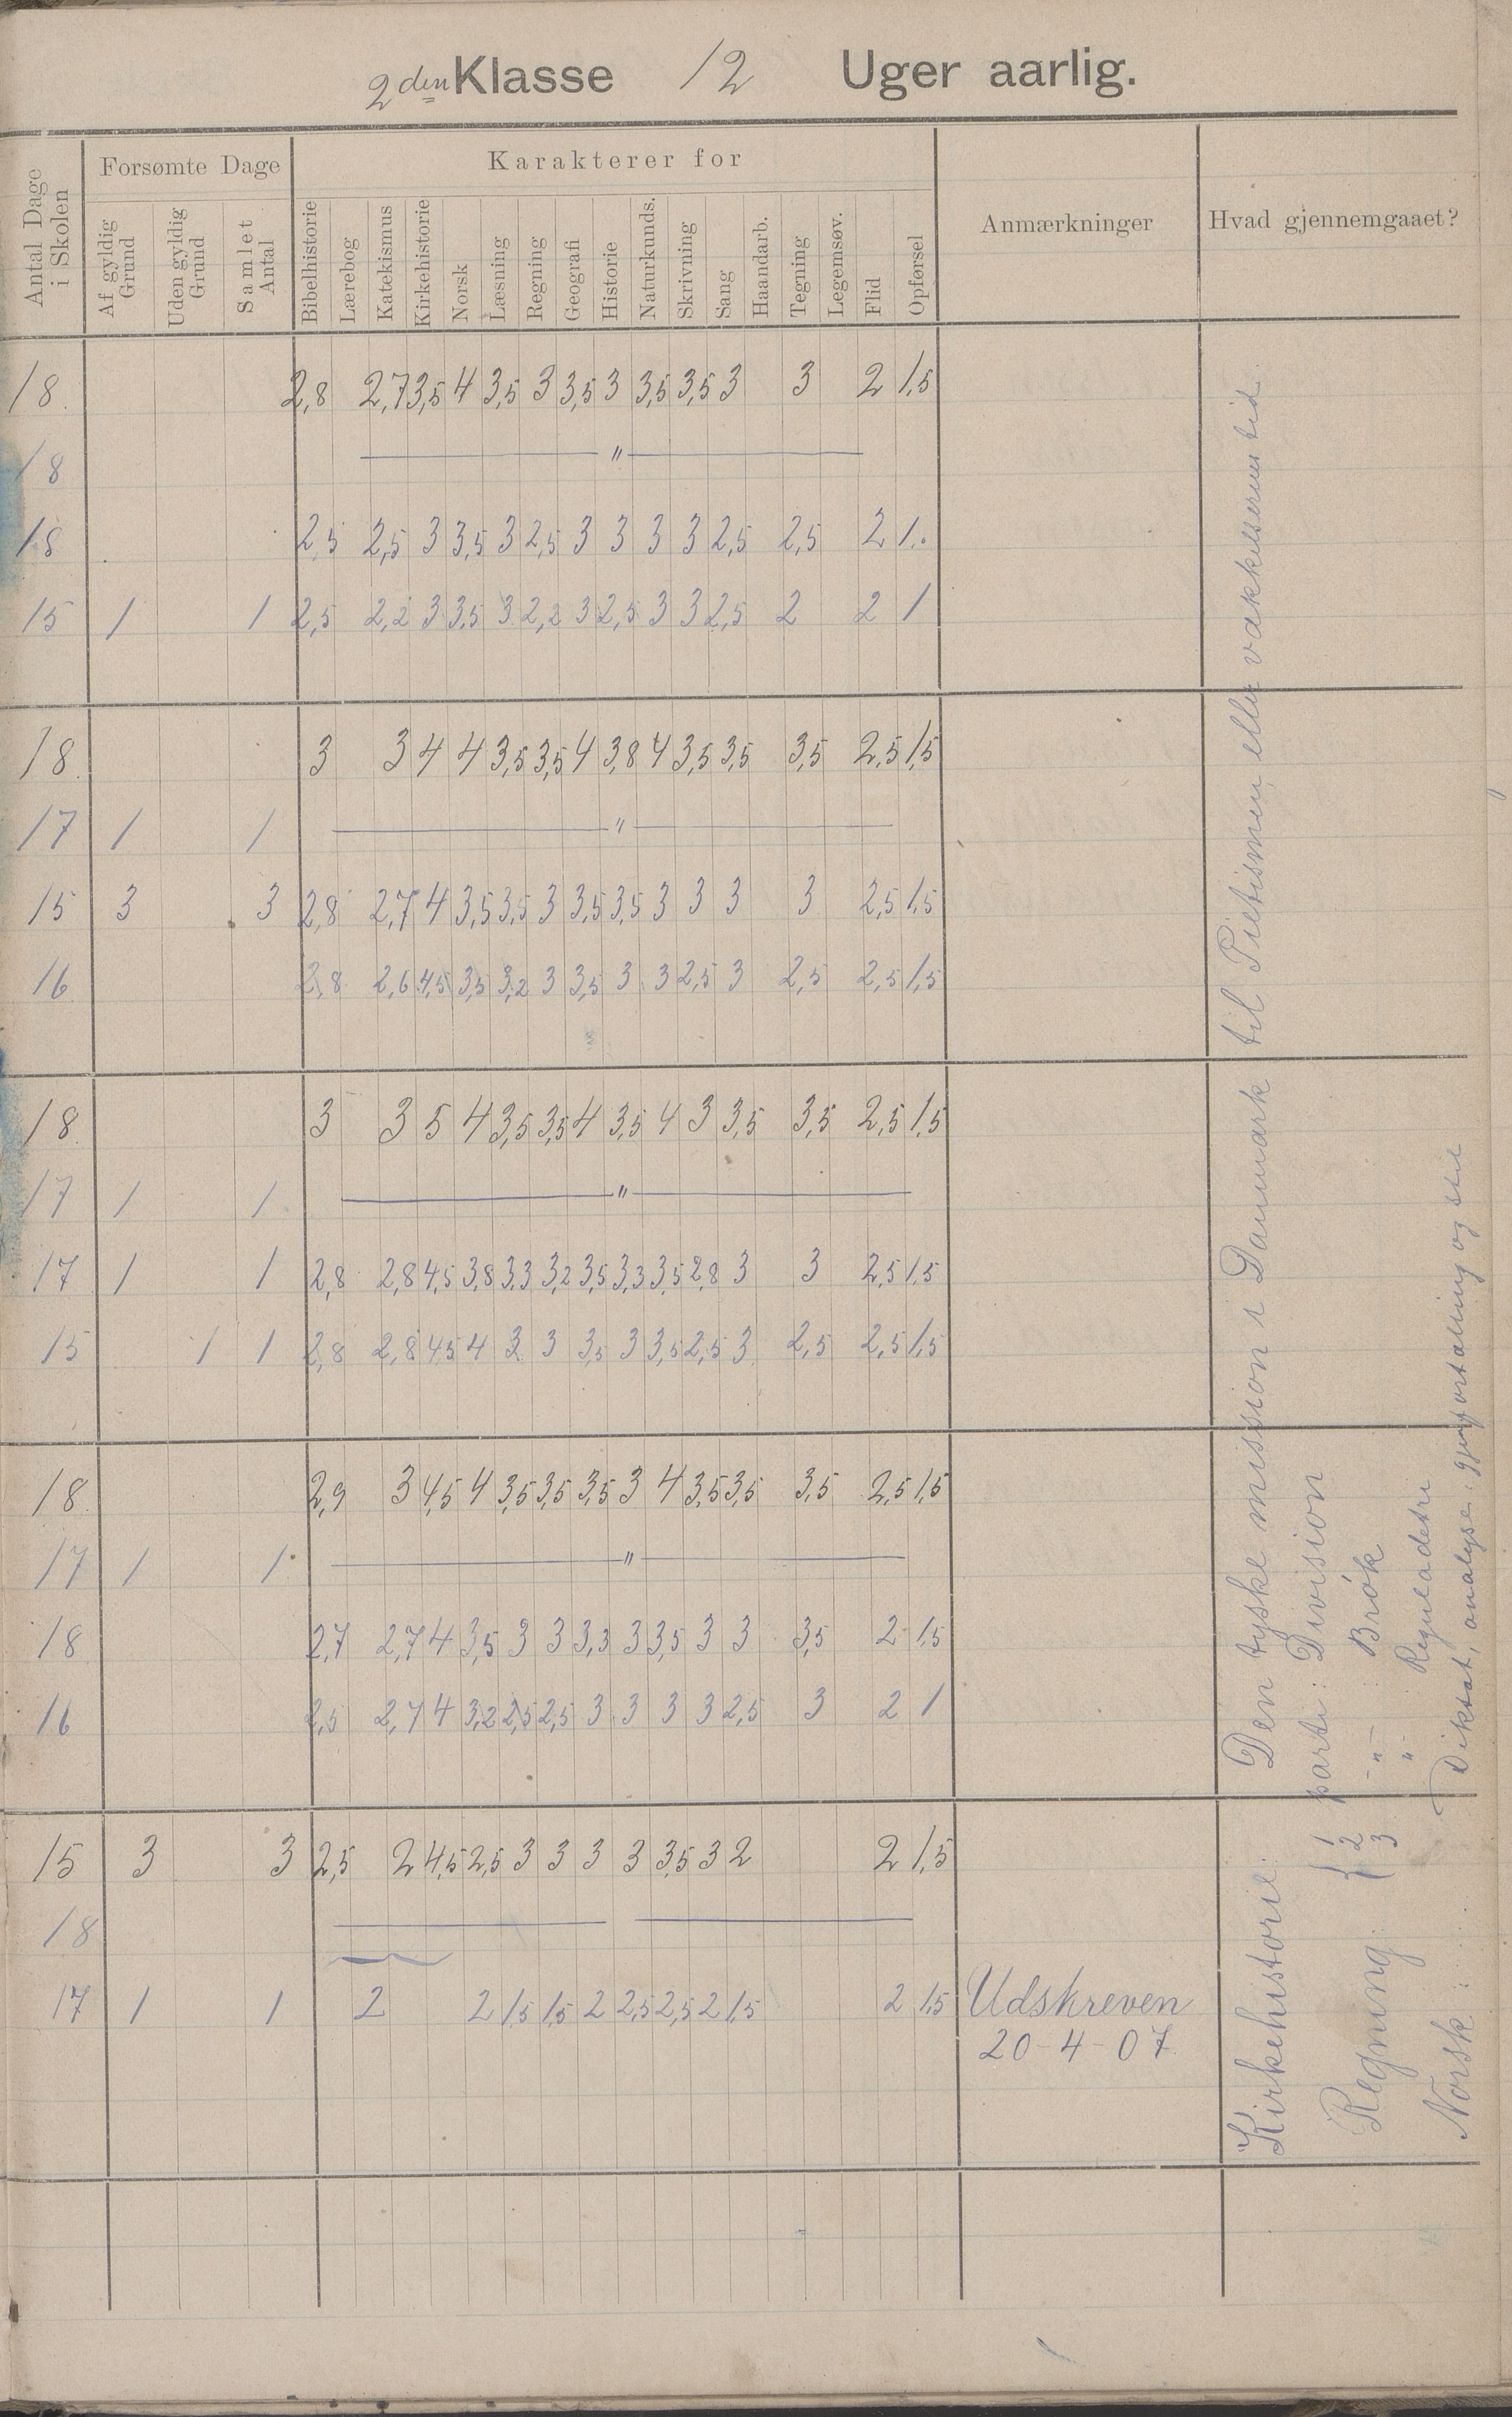 2den Klasse 12 Uger aarlig.
Antal Dage i Skolen
Forsømte Dage
Af gyldig Grund
Uden gyldig Grund
Samlet Antal
Karakterer for
Bibelhistorie
Lærebog
Katekismus
Kirkehistorie
Norsk
Læsning
Regning
Geografi
Historie
Naturkunds.
Skrivning
Sang
Haandarb.
Tegning
Legemsøv.
Flid
Opførsel
Anmærkninger
Hvad gjennemgaaet?
18. 2,8 2,7 3,5 4 3,5 3 3,5 3 3,5 3,5 3 3 2 1,5
18 "
18 2,5 2,5 3 3,5 3 2,5 3 3 3 3 2,5 2,5 2 1.
15 1 1 2,5 2,2 3 3,5 3 2,2 3 2,5 3 3 2,5 2 2 1
18. 3 3 4 4 3,5 3,5 4 3,8 4 3,5 3,5 3,5 2,5 1,5
17 1 1 "
15 3 3 2,8 2,7 4 3,5 3,5 3 3,5 3,5 3 3 3 3 2,5 1,5
16 2,8 2,6 4,5 3,5 3,2 3 3,5 3 3 2,5 3 2,5 2,5 1,5
18. 3 3 5 4 3,5 3,5 4 3,5 4 3 3,5 3,5 2,5 1,5
17 1 1 "
17 1 1 2,8 2,8 4,5 3,8 3,3 3,2 3,5 3,3 3,5 2,8 3 3 2,5 1,5
15 1 1 2,8 2,8 4,5 4 3 3 3,5 3 3,5 2,5 3 2,5 2,5 1,5
18. 2,9 3 4,5 4 3,5 3,5 3,5 3 4 3,5 3,5 3,5 2,5 1,5
17 1 1 "
18 2,7 2,7 4 3,5 3 3 3,3 3 3,5 3 3 3,5 2 1,5
16 2,5 2,7 4 3,2 2,5 2,5 3 3 3 3 2,5 3 2 1
15 3 3 2,5 2 4,5 2,5 3 3 3 3 3,5 3 2 2 1,5
18
17 1 1 2 2 1,5 1,5 2 2,5 2,5 2 1,5 2 1,5 Udskreven
20-4-07.
Kirkehistorie: Den tyske mission i Danmark til Pietismen eller vækkelsernes tid.
Regning: { 1 parti: Division
2 -"- : Brøk
3 " : Reguladetri
Norsk: Diktat, analyse, gjenfortælling og stil